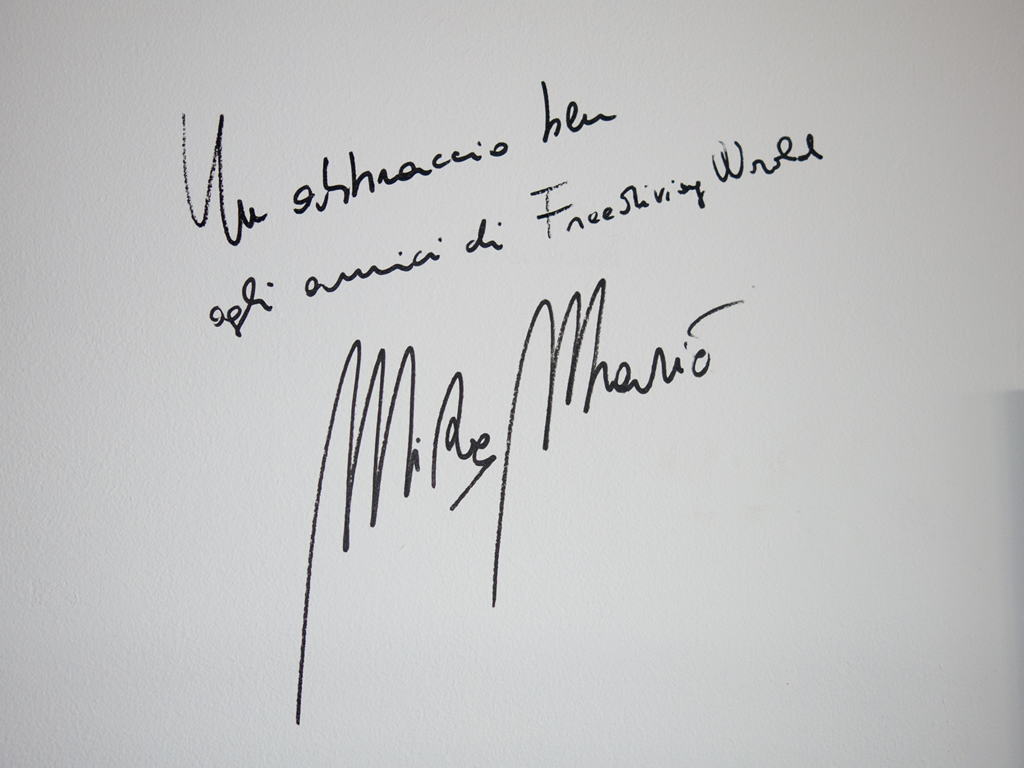 Un abbraccio blu
agli amici di Freediving World
Mike Marić